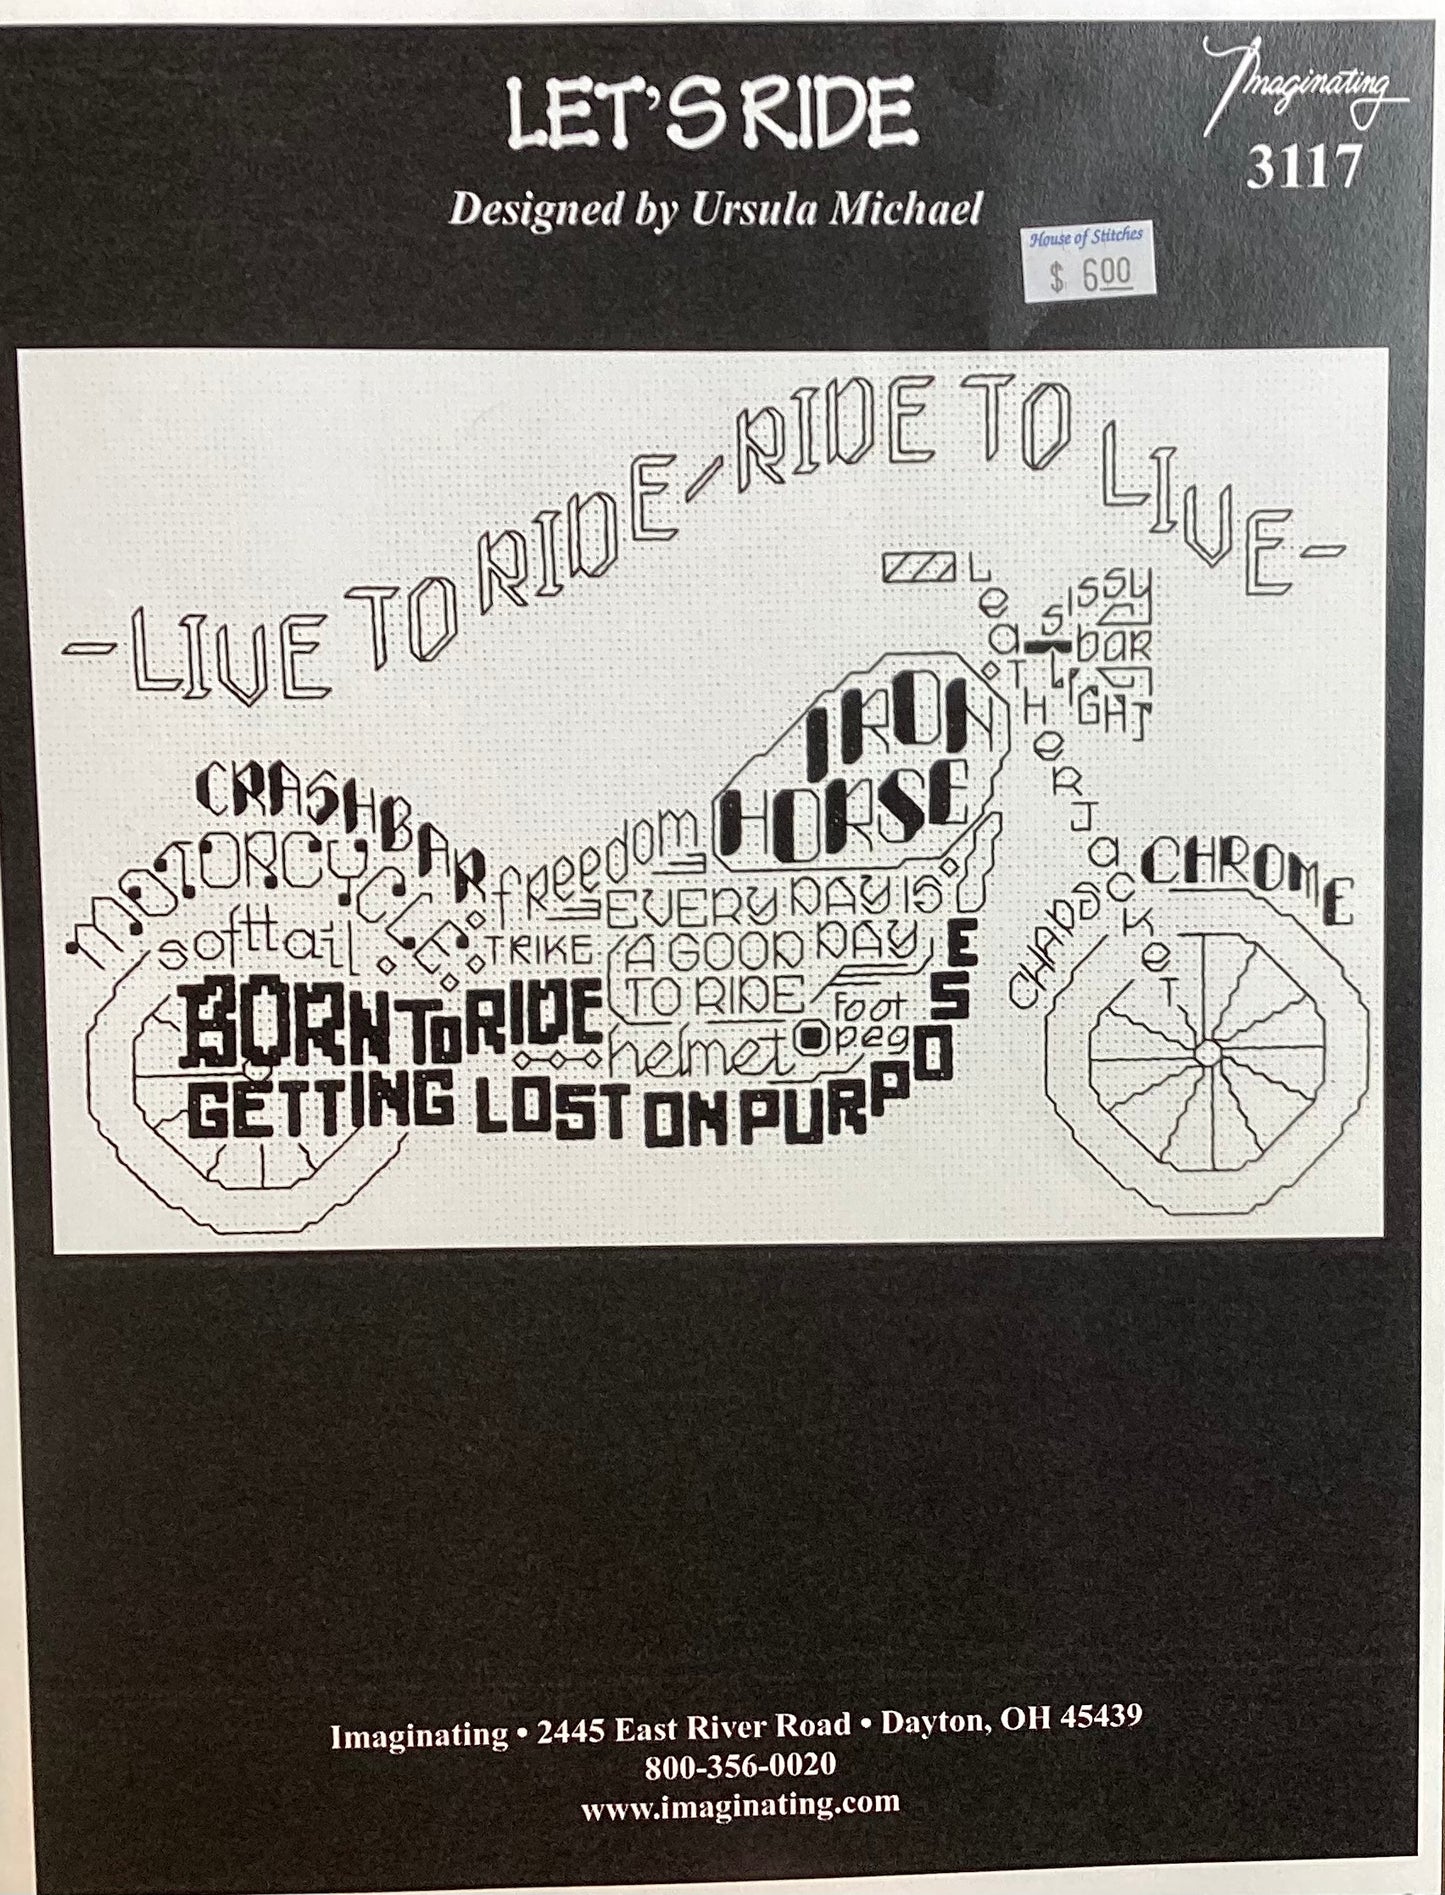 LET'S RIDE
Imaginating
3117
Designed by Ursula Michael
House of Stitches
$ 6.00
-LIVE TO RIDE/RIDE TO LIVE-
LeaTHeRJacKeT
sissy
bar
LIGHT
IRON
HORSE
CRASHBAR
MOTORCYCLE
freedom
CHROME
CHAPS
softtail
TRIKE
EVERY DAY IS
A GOOD DAY
TO RIDE
BORN TO RIDE
foot
peg
helmet
GETTING LOST ON PURPOSE
Imaginating • 2445 East River Road • Dayton, OH 45439
800-356-0020
www.imaginating.com